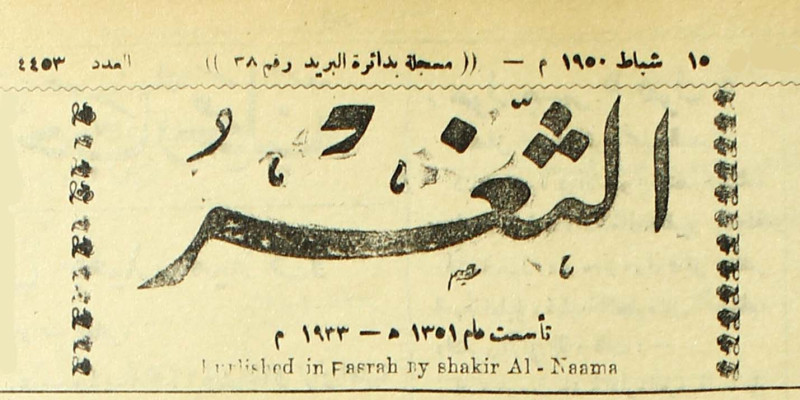 ١٥ شباط ١٩٥٠ م — (( مسجلة بدائرة البريد رقم ٣٨ )) العدد ٤٤٥٣
الثغر
تأسست عام ١٣٥١ ه — ١٩٣٣ م
Published in Basrah By shakir Al - Naama